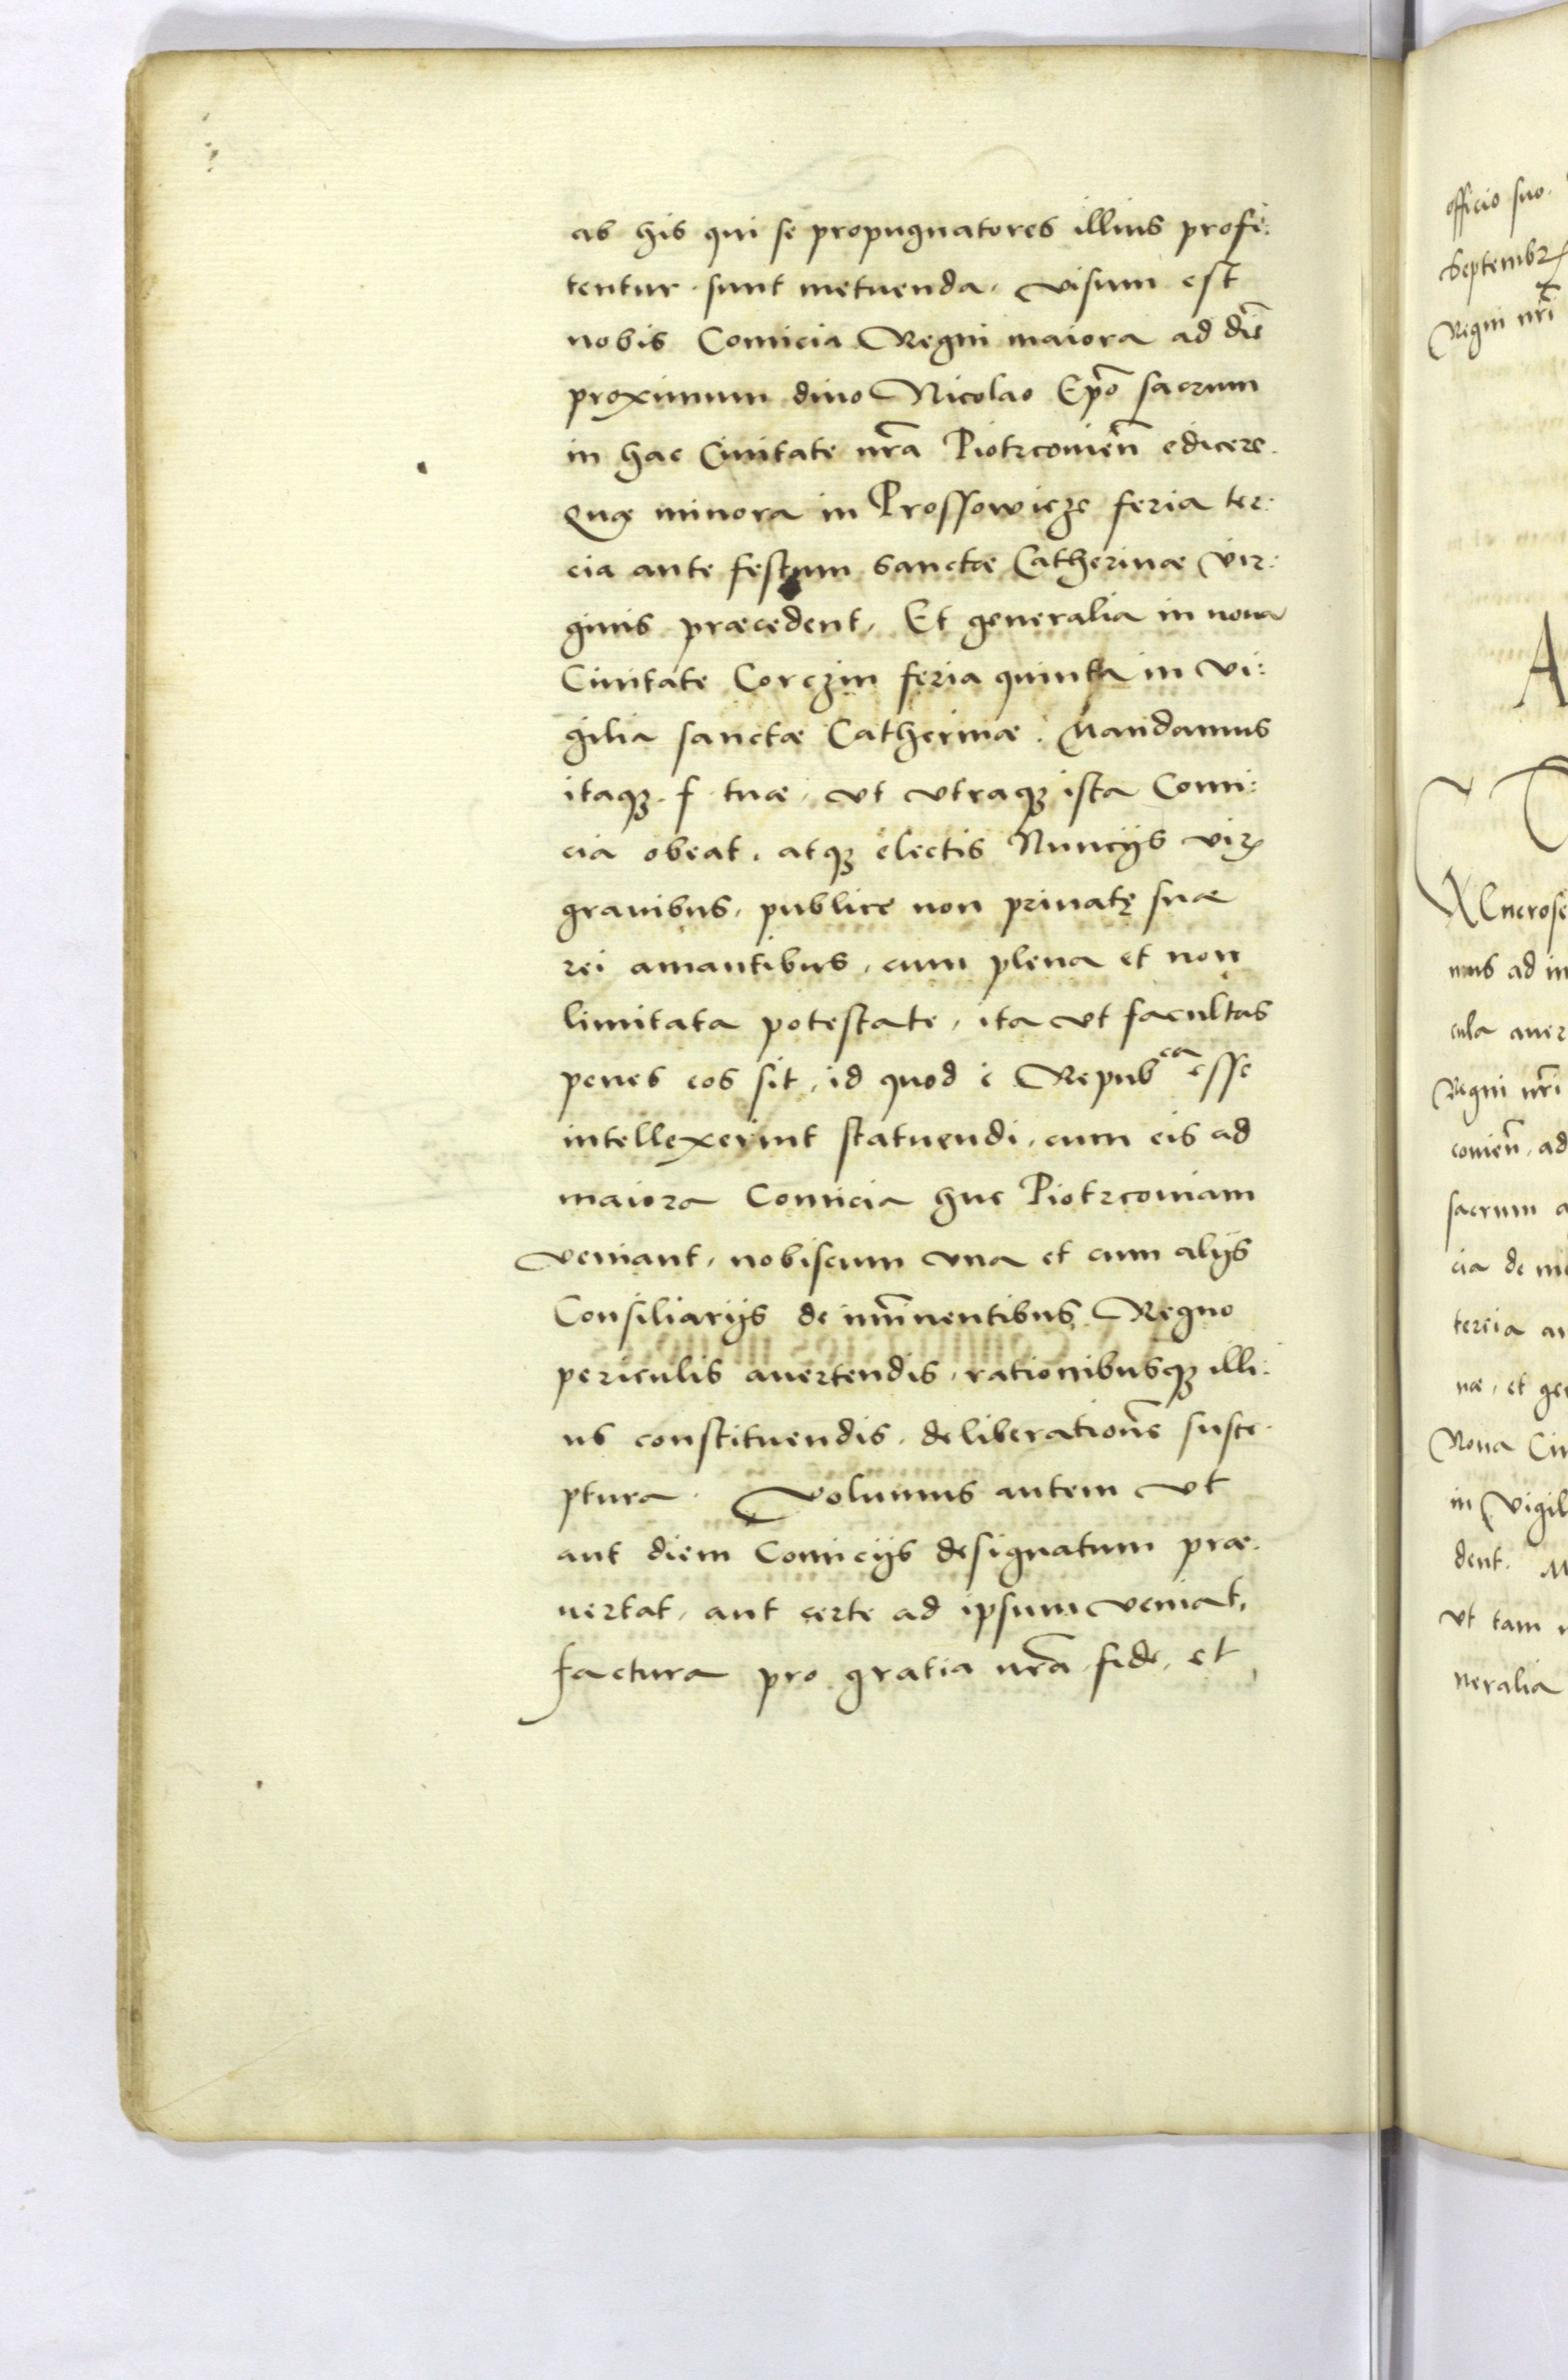 ab his qui se propugnatores illius profi:
tentur sunt metuenda. visum est
nobis Comicia Regni maiora ad diē
proximum diuo Nicolao Ep̄o sacrum
in hac Ciuitate nr̄a Piotrcouien̄ edicere.
Quę minora in Prossowicze feria ter:
cia ante festum Sanctæ Catherinæ Vir:
ginis præcedent, Et generalia in noua
Ciuitate Corczin feria quinta in vi:
gilia sanctæ Catherinæ. Mandamus
itaqꝫ f tuæ, vt vtraqꝫ ista Comi:
cia obeat, atqꝫ electis Nuncijs viꝝ
grauibus, publice non priuatę suæ
rei amantibus, cum plena et non
limitata potestate, ita vt facultas
penes eos sit, id quod è Repub^ca esse
intellexerint statuendi, cum eis ad
maiora Comicia huc Piotrcouiam
veniant, nobiscum vna et cum alijs
Consiliarijs de im̄inentibus Regno
periculis auertendis, rationibusqꝫ illi:
us constituendis, deliberationē susce:
ptura. Volumus autem vt
aut diem Comicijs designatum præ:
uertat, aut certe ad ipsum veniat,
factura pro gratia nr̄a fide, et
officio suo.
Septembꝝ
Regni nr̄i
A
nus ad in
cula auer
Regni nr̄i
couien̄, ad
sacrum a
cia de mo
tercia an
næ, et ge
Noua Ciu
in Vigil
dent. M
vt tam
neralia